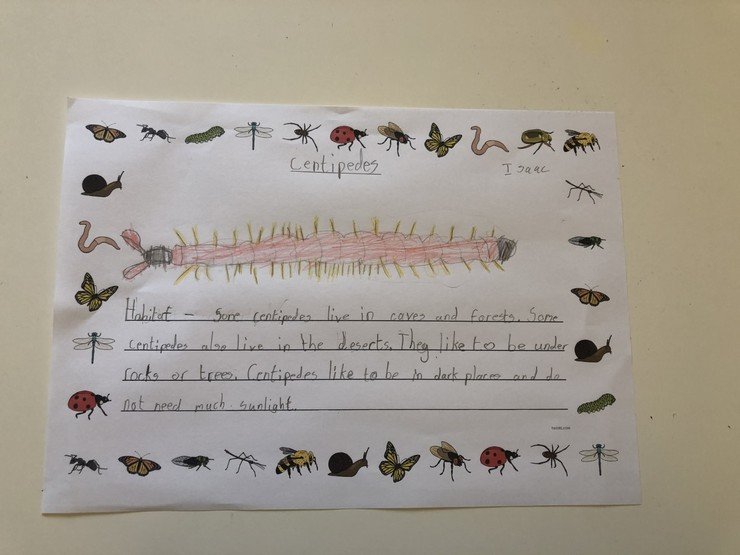 Centipedes
Isaac
Habitat - Some centipedes live in caves and forests. Some
centipedes also live in the deserts. They like to be under
rocks or trees. Centipedes like to be in dark places and do
not need much sunlight.